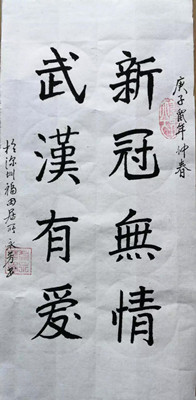 庚子鼠年仲春
新冠無情
武漢有爱
於深圳福田居所永芳書